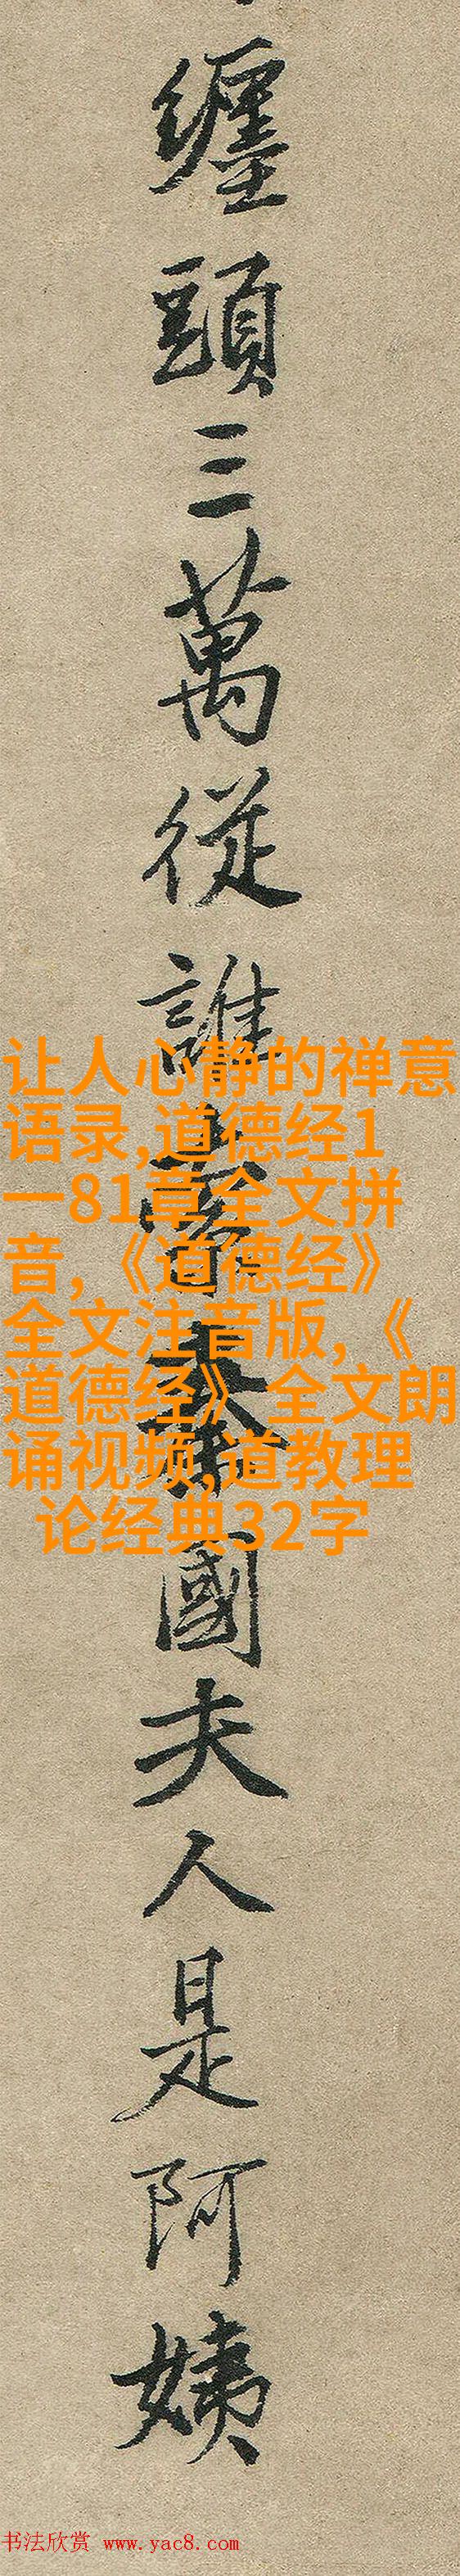 纏頭三萬從誰 秦國夫人是阿姨
让人心静的禅意
语录,道德经1
一81章全文拼
音,《道德经》
全文注音版,《
道德经》全文朗
诵视频,道教理
论经典32字
书法欣赏 www.yac8.com